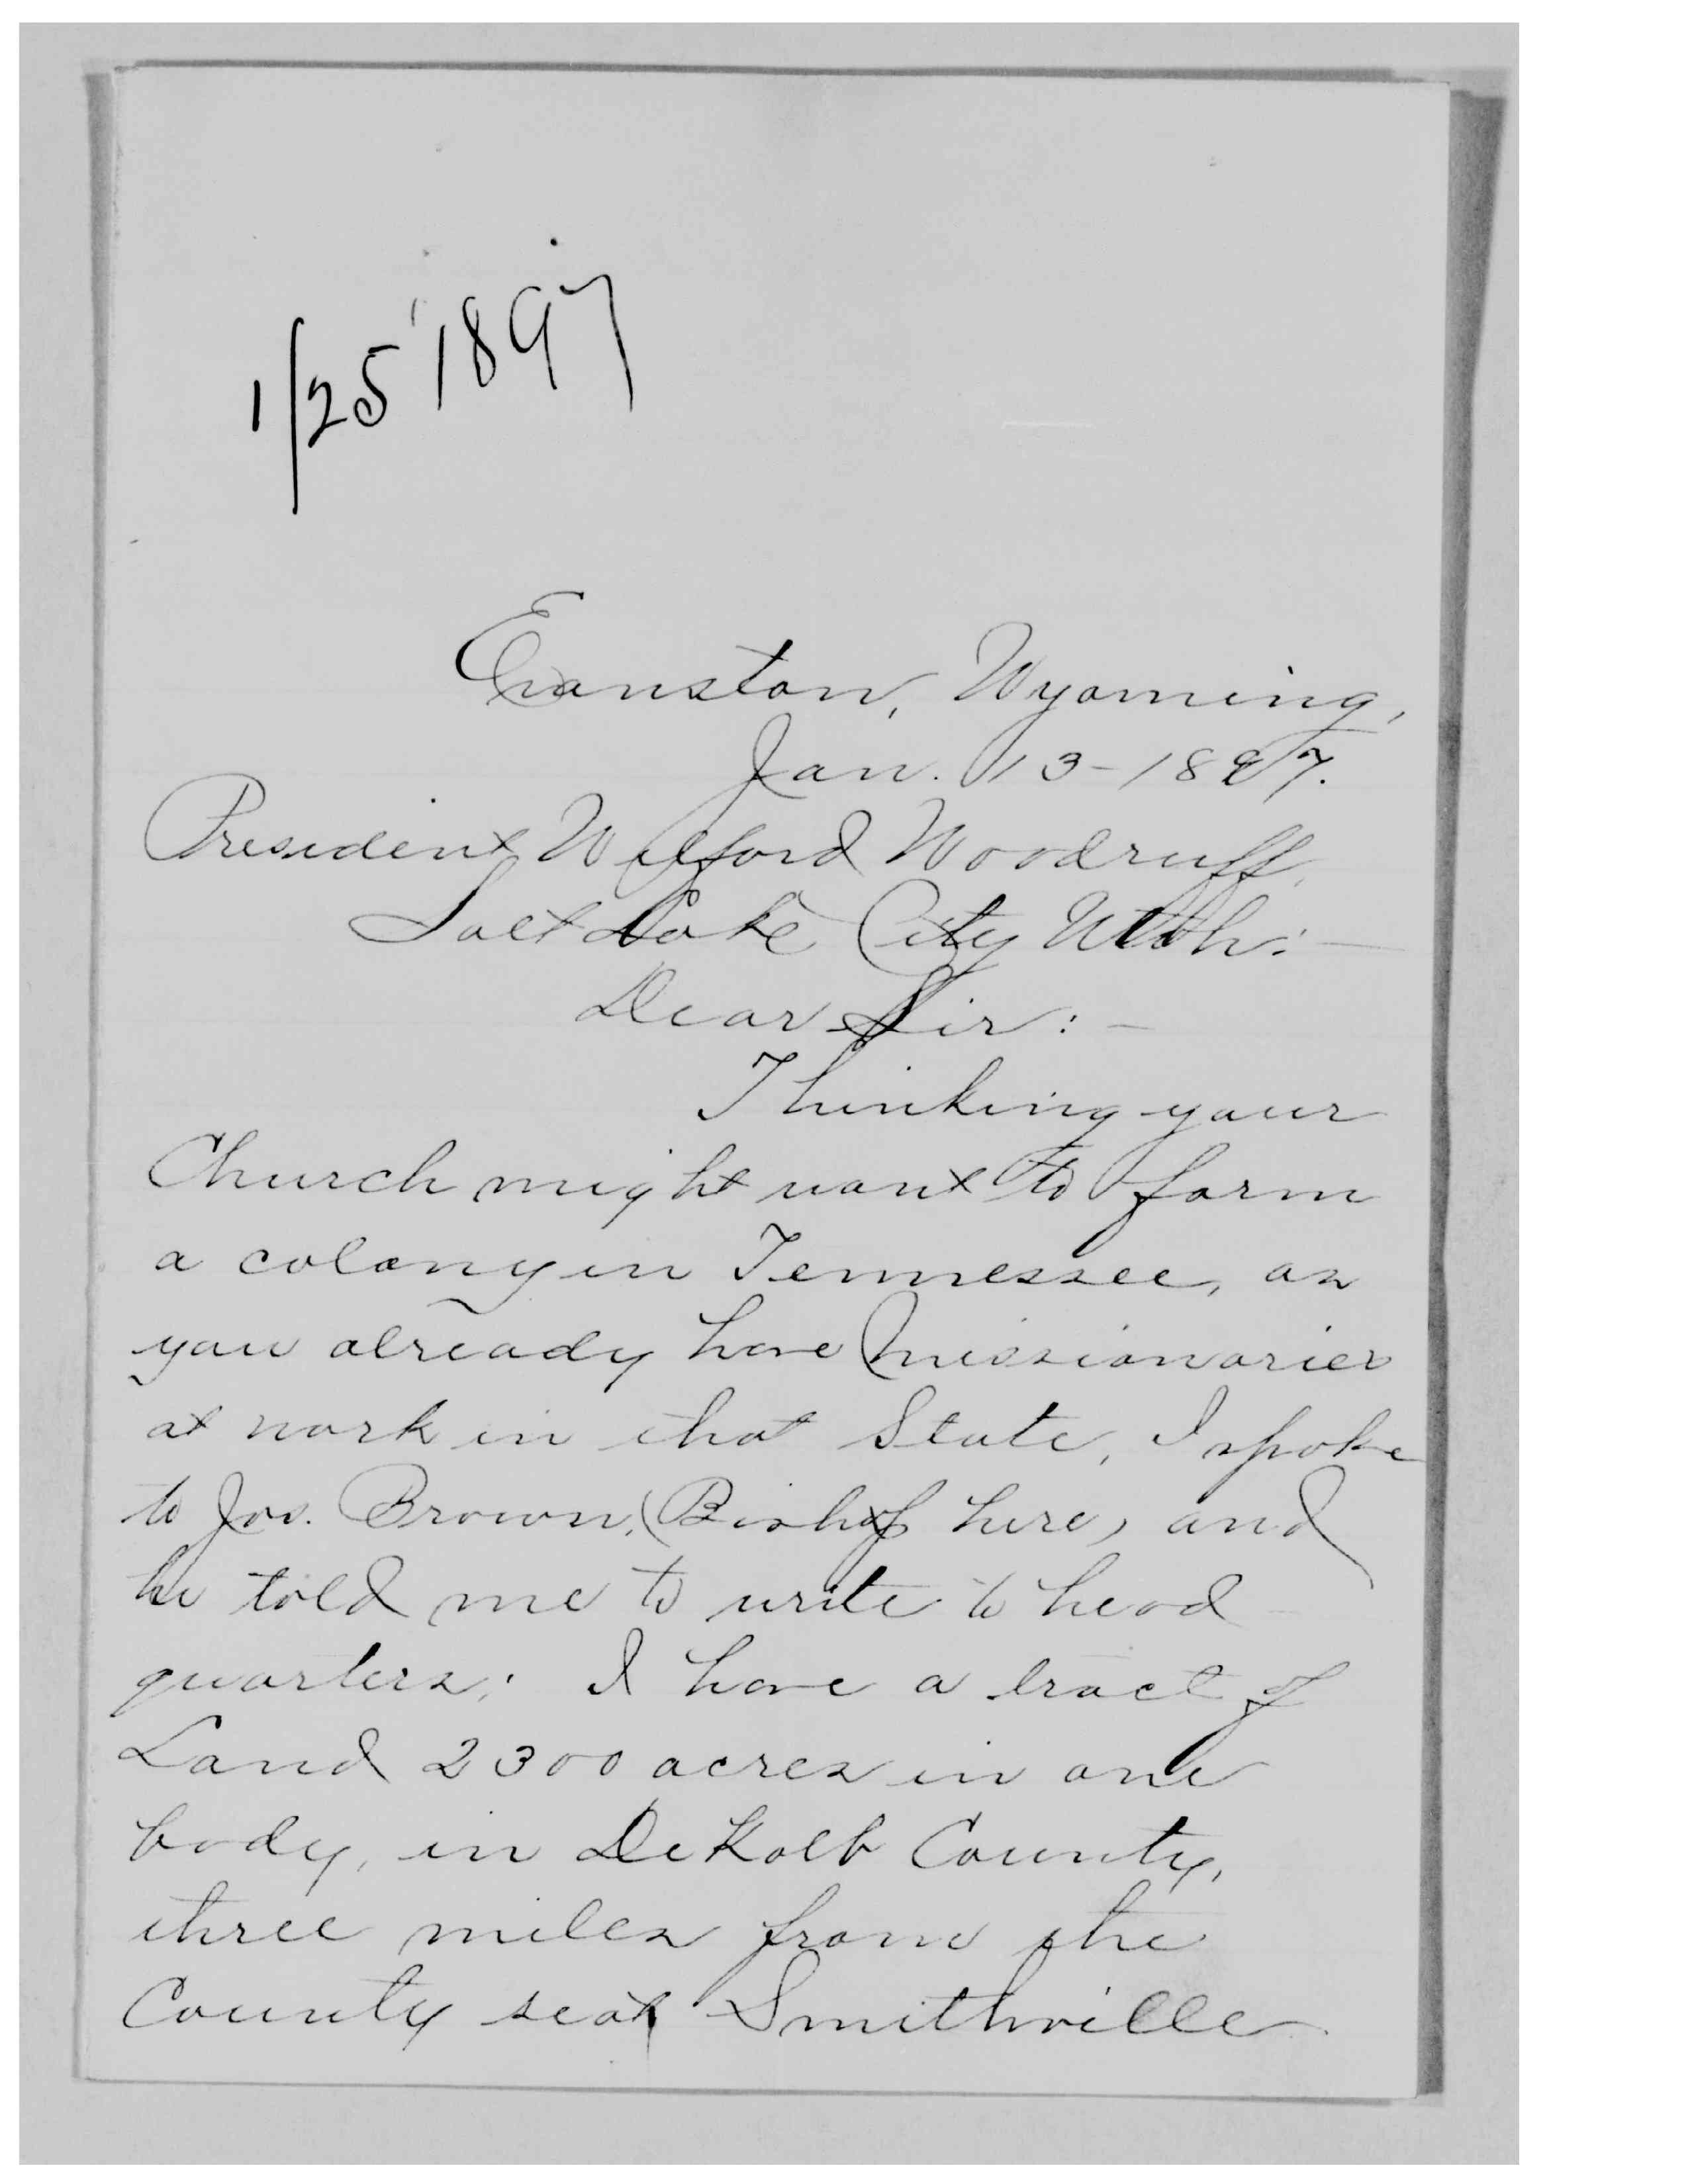 1/25 1897
Evanston, Wyoming,
Jan. 13-1897.
President Wilford Woodruff,
Salt Lake City Utah:—
Dear Sir:—
Thinking your
Church might want to form
a colony in Tennessee, as
you already have missionaries
at work in that State, I spoke
to Jas. Brown, (Bishop here, and
he told me to write to head
quarters; I have a tract of
Land 2300 acres in one
body, in DeKalb County,
three miles from the
County seat Smithville